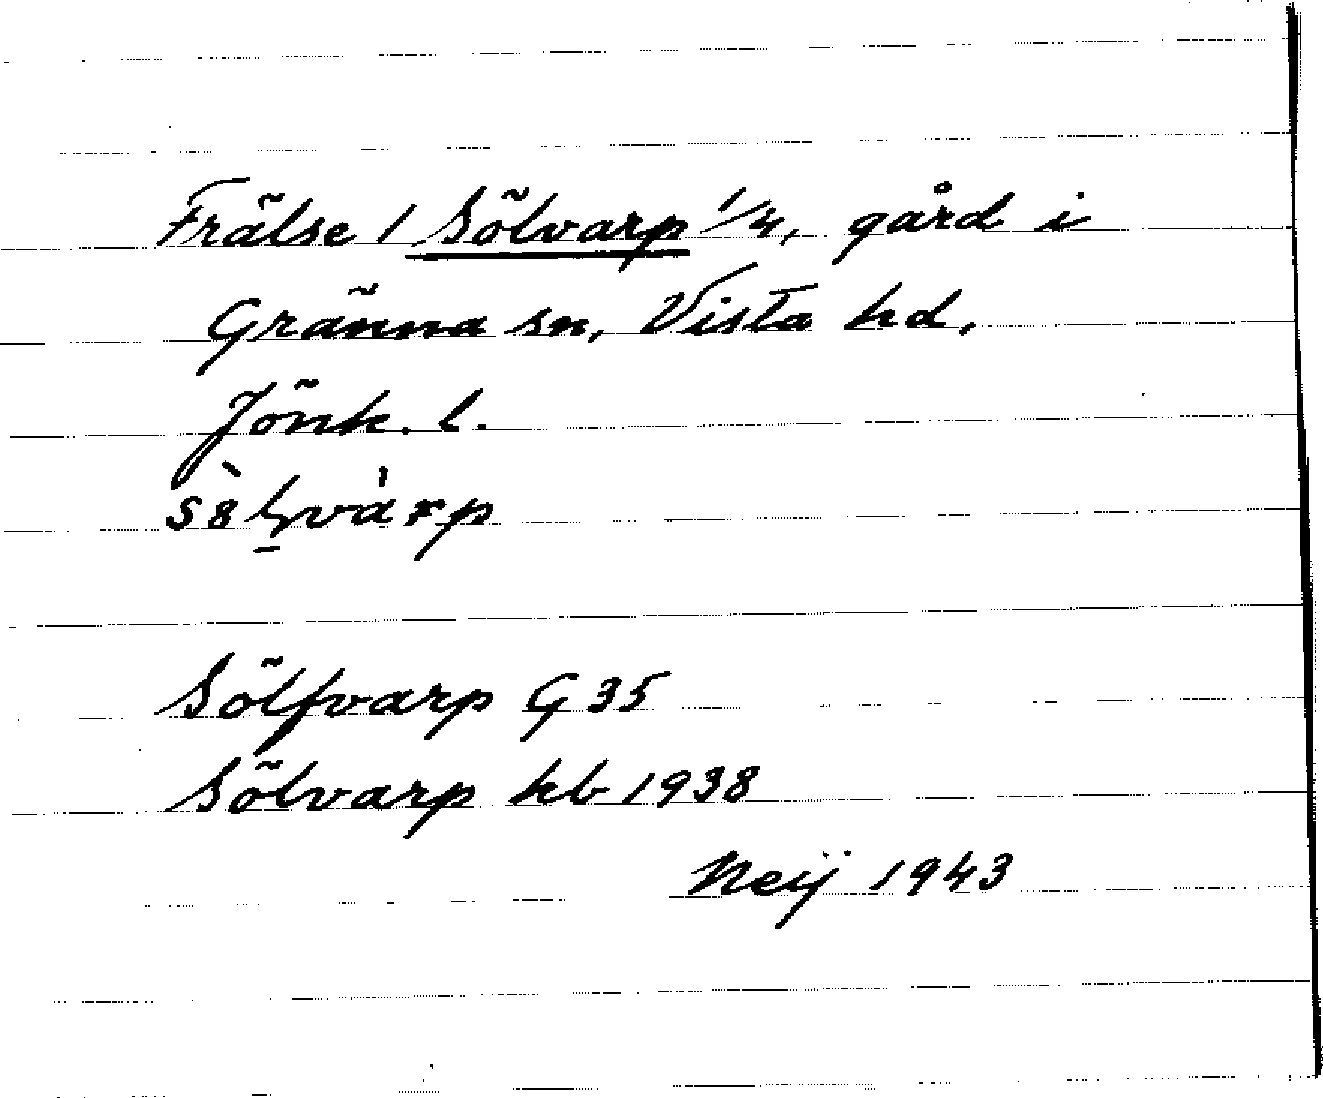 Frälse 1 Sölvarp 1/4, gård i
Gränna sn, Vista hd,
Jönk. l.
Sölfvarp G 35
Sölvarp kb 1938
Neij 1943